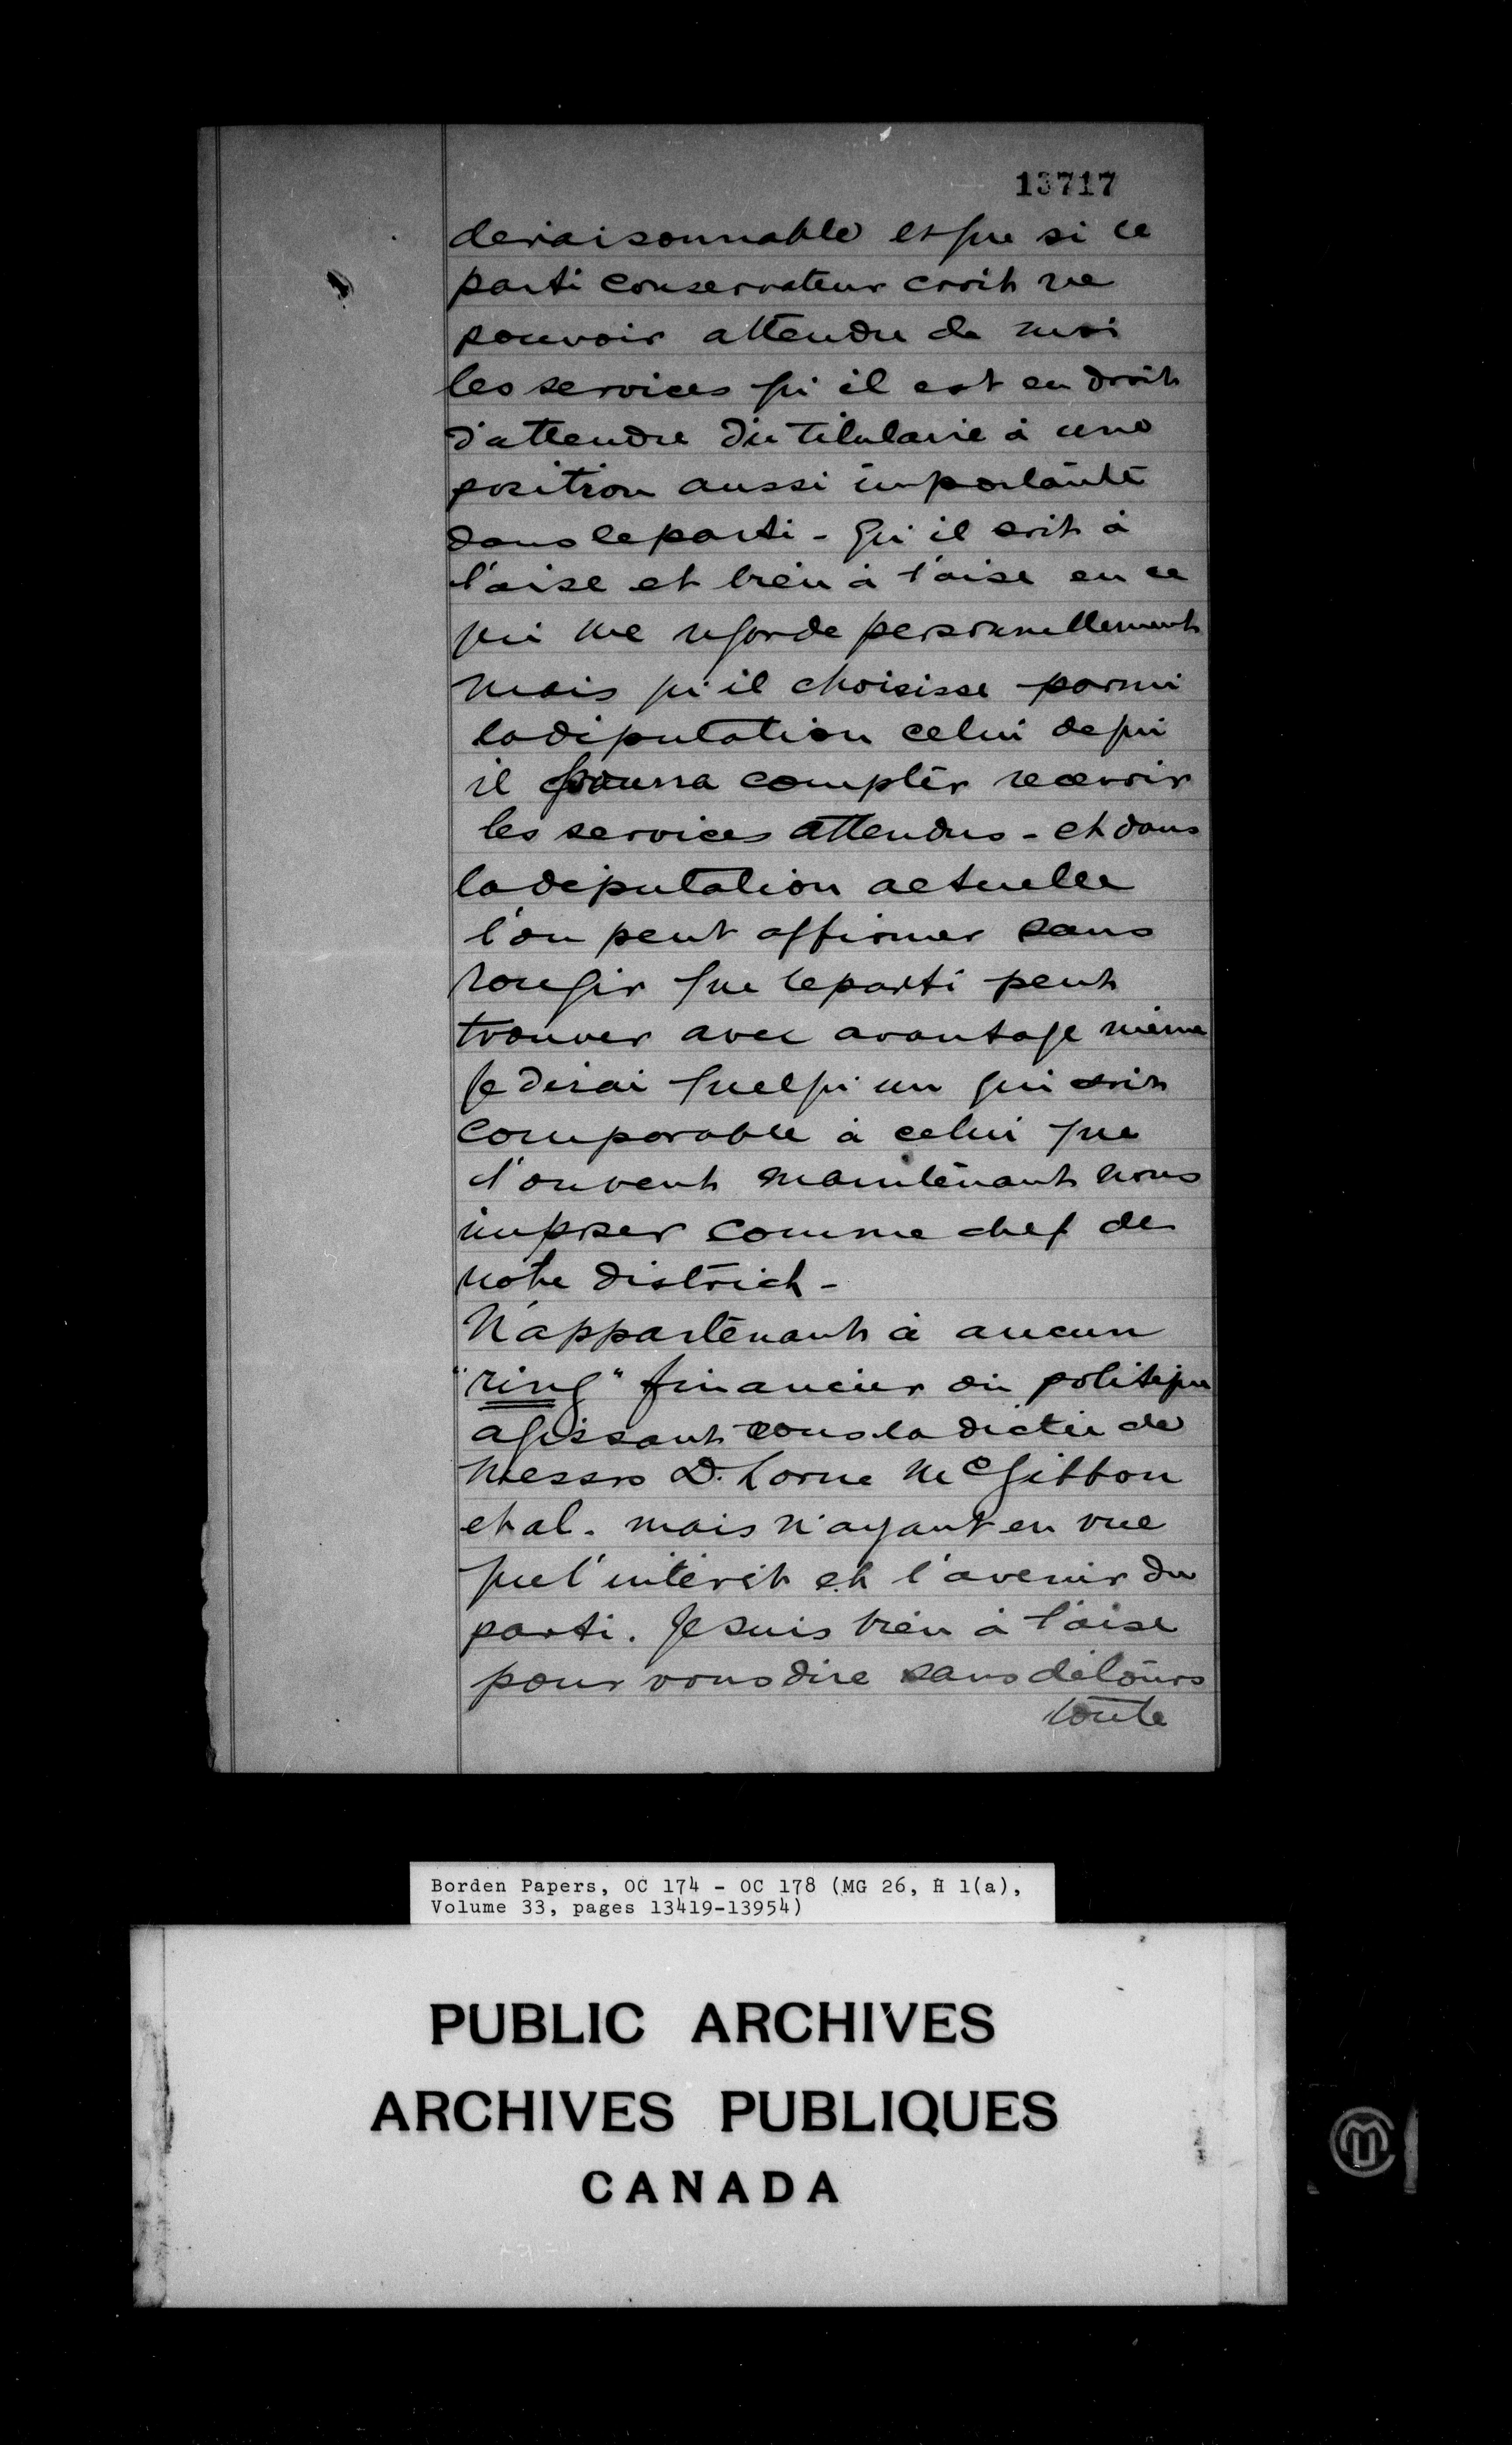 13717
deraisonnable et que si le
parti conservateur croit ne
pouvoir attendre de moi
les services qu'il est en droit
d'attendre du titulaire à une
position aussi importante
dans le parti - Qu'il soit à
l'aise et bien à l'aise en ce
qui me regarde personnellement
mais qu'il choisisse parmi
la députation celui de qui
il pourra compter recevoir
les services attendus - et dans
la députation actuelle
l'on peut affirmer sans
rougir que le parti peut
trouver avec avantage même
je dirai quelqu'un qui soit
comparable à celui que
l'on veut maintenant nous
imposer comme chef de
notre district -
N'appartenant à aucun
"ring" financier ou politique
agissant sous la dictée de
Messrs D. Lorne McGibbon
et al. mais n'ayant en vue
que l'intérêt et l'avenir du
parti. Je suis bien à l'aise
pour vous dire sans détours
toute
Borden Papers, OC 174 - OC 178 (MG 26, H 1(a),
Volume 33, pages 13419-13954)
PUBLIC ARCHIVES
ARCHIVES PUBLIQUES
CANADA